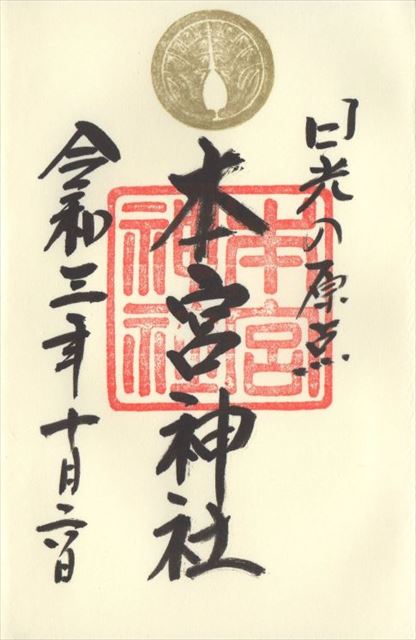 日光の原点
本宮神社
本宮
神社
令和三年十月六日